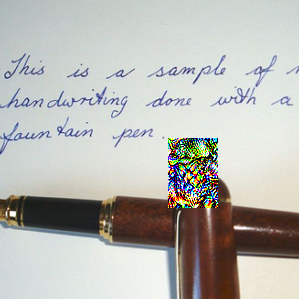 This is a sample of
handwriting done with a
fountain pen.